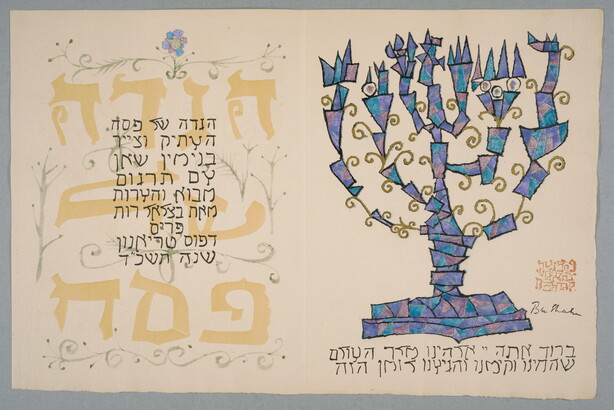 ברוך אתה יי אלהינו מלך העולם
שהחינו וקימנו והגיענו לזמן הזה
Ben Shahn
הגדה
של
פסח
הגדה של פסח
העתיק וצייר
בנימין שאן
עם תרגום
מבוא והערות
מאת בצלאל רות
פריס
דפוס טריאנון
שנת